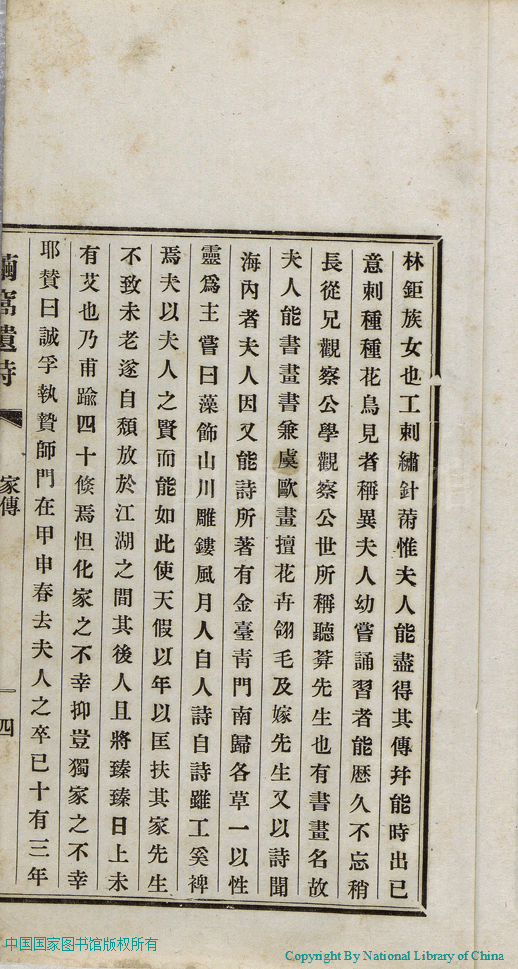 林鉅族女也工刺繡針黹惟夫人能盡得其傳幷能時出己
意刺種種花鳥見者稱異夫人幼嘗誦習者能歷久不忘稍
長從兄觀察公學觀察公世所稱聽莽先生也有書畫名故
夫人能書畫書兼虞歐畫擅花卉翎毛及嫁先生又以詩聞
海內者夫人因又能詩所著有金臺靑門南歸各草一以性
靈爲主嘗曰藻飾山川雕鏤風月人自人詩自詩雖工奚裨
焉夫以夫人之賢而能如此使天假以年以匡扶其家先生
不致未老遂自頹放於江湖之間其後人且將臻臻日上未
有艾也乃甫踰四十倏焉怛化家之不幸抑豈獨家之不幸
耶贊曰誠孚執贄師門在甲申春去夫人之卒已十有三年
繭窩遺詩
家傳
四
中国国家图书馆版权所有
Copyright By National Library of China